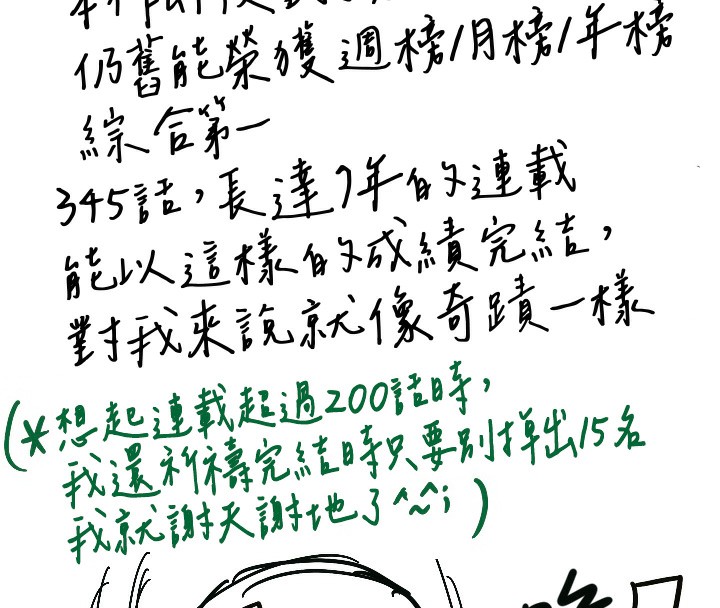 仍舊能榮獲週榜/月榜/年榜
綜合第一
345話，長達7年的連載
能以這樣的成績完結，
對我來說就像奇蹟一樣
(*想起連載超過200話時，
我還祈禱完結時只要別掉出15名
我就謝天謝地了^~^;)